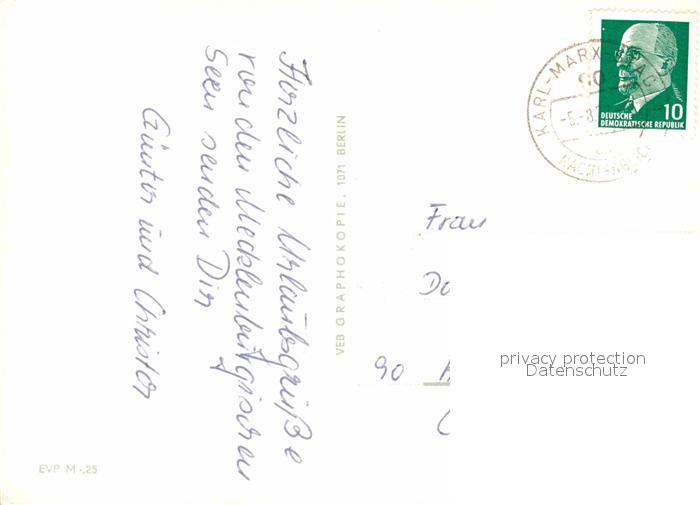 Herzliche Urlaubsgrüße
von den Mecklenburgischen
Seen senden Dir
Günter und Christor
VEB GRAPHOKOPIE, 1071 BERLIN
EVP M -,25
KARL-MARX-STADT
90
-5.-8.
DEUTSCHE
DEMOKRATISCHE REPUBLIK
10
Frau
Do
90
privacy protection
Datenschutz